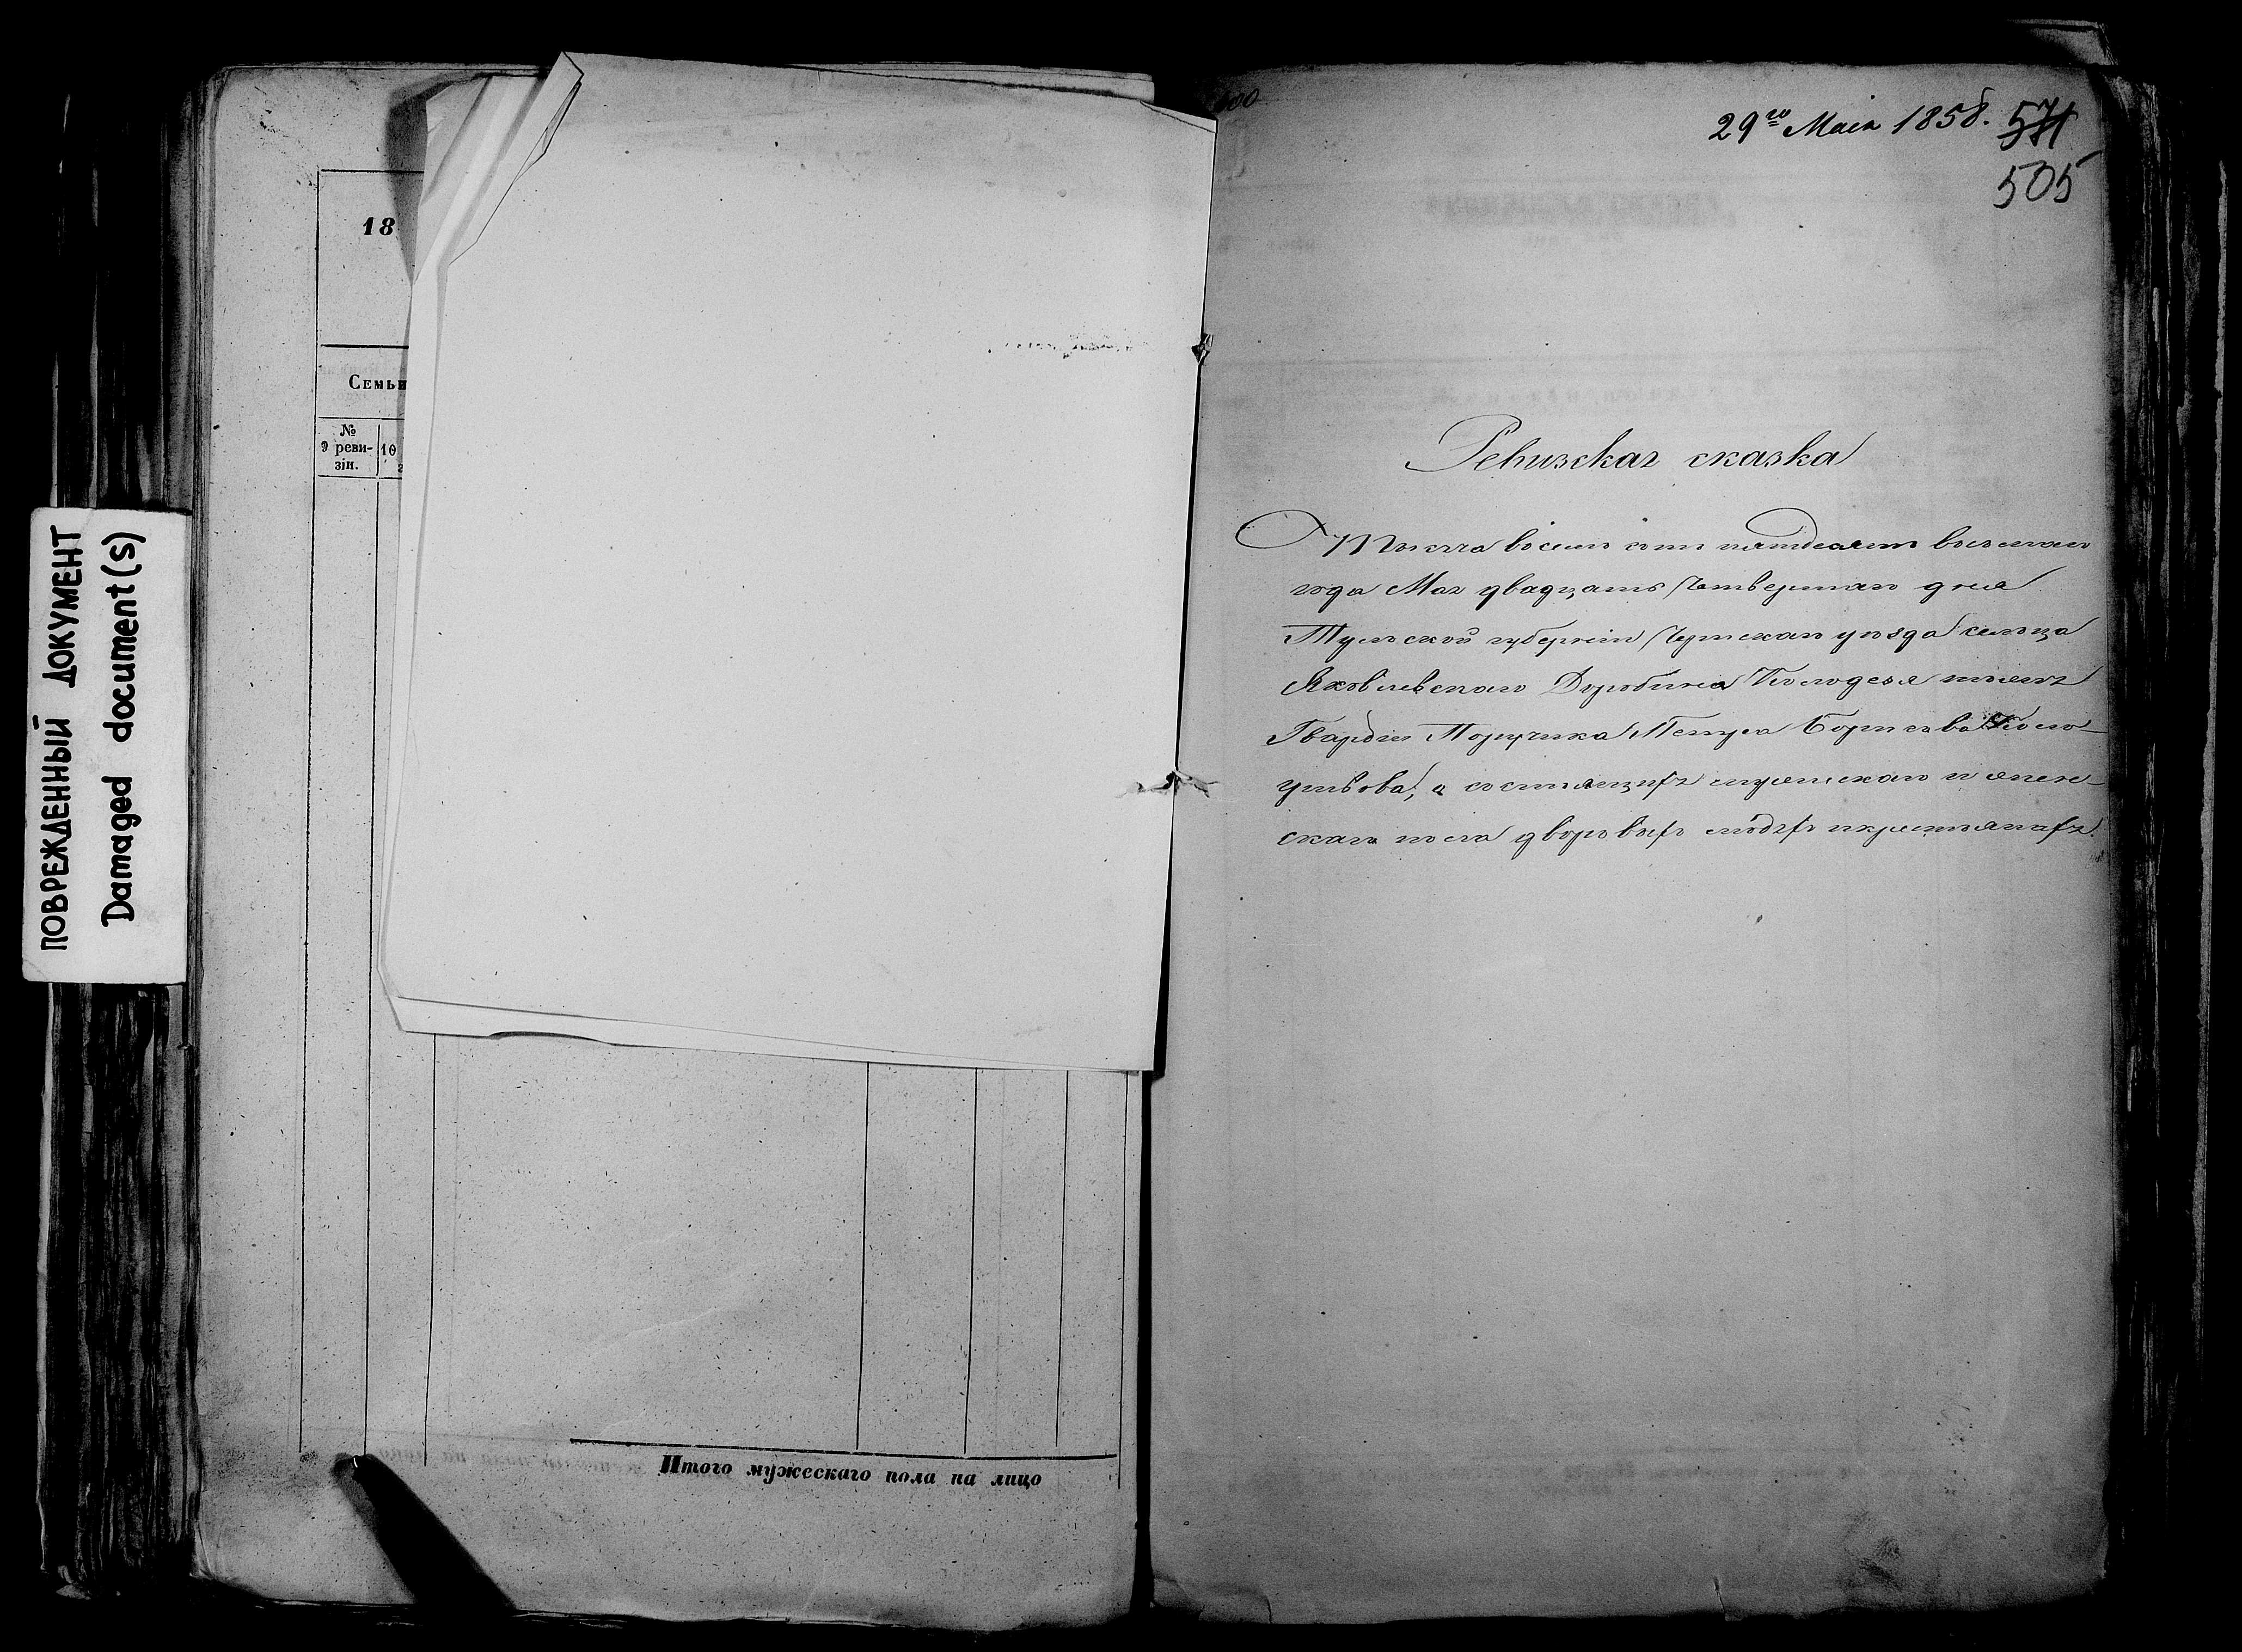 ПОВРЕЖДЕННЫЙ ДОКУМЕНТ
Damaged document(s)
18
Семьи
№
9 реви-
зіи.
10
Итого мужескаго пола на лицо
29го Маія 1858. 571
505
Ревизская сказка
Тысяча восемь сотъ пятдесятъ восьмаго
года Мая двадцать четвертаго дня
Тульской губерніи Чернскаго уѣзда сельца
Яковлевскаго Доробина Колодезя тожъ
Гвардіи Поручика Петра Борисова
а состоящихъ мужескаго и жен-
скаго пола дворовыхъ людяхъ и крестьянахъ.